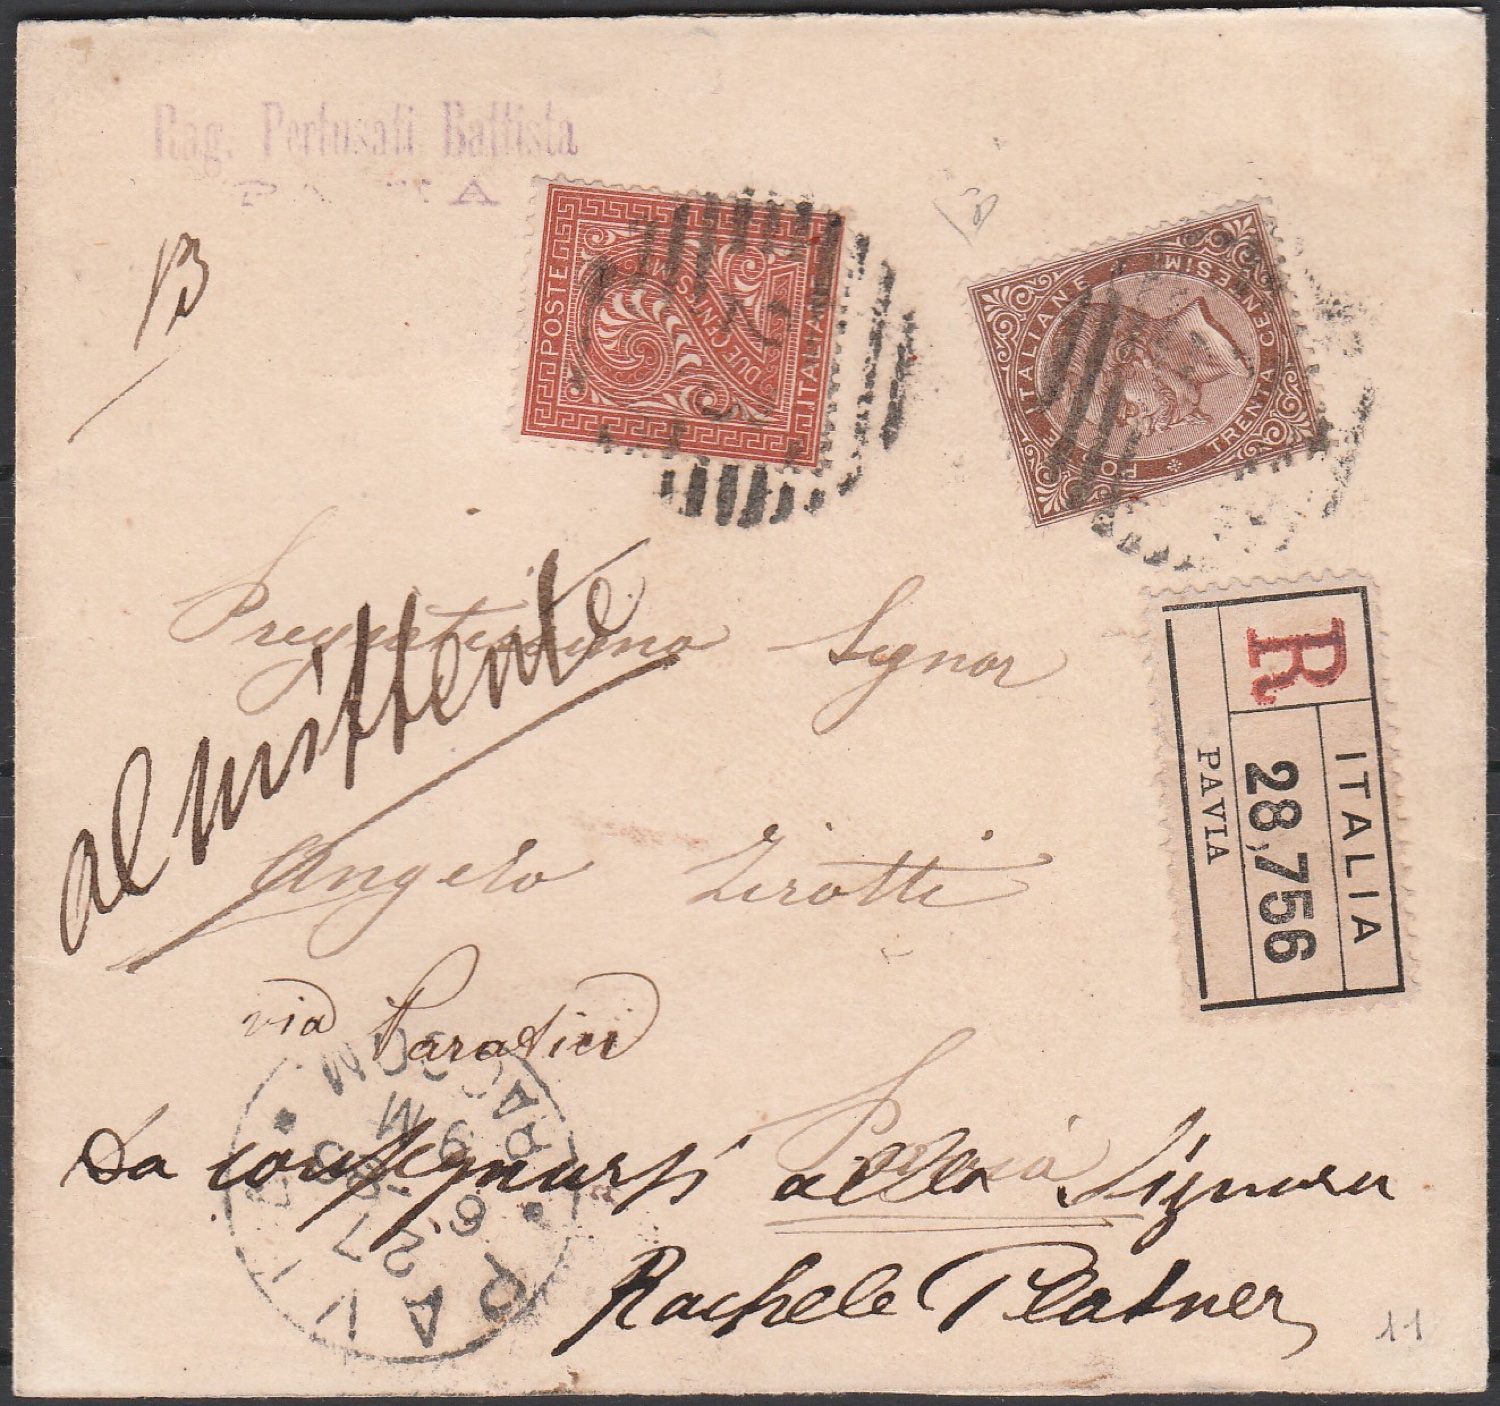 Rag. Pertusati Battista
PAVIA
POSTE
DUE CENTESIMI
ITALIANE
POSTE ITALIANE
TRENTA CENTESIMI
Pregiatissimo Signor
al mittente
Angelo Zirotti
via Paratici
Pavia
Da consegnarsi alla Signora
Rachele Platner
R
ITALIA
28,756
PAVIA
PAVIA
27
6
9 M
11